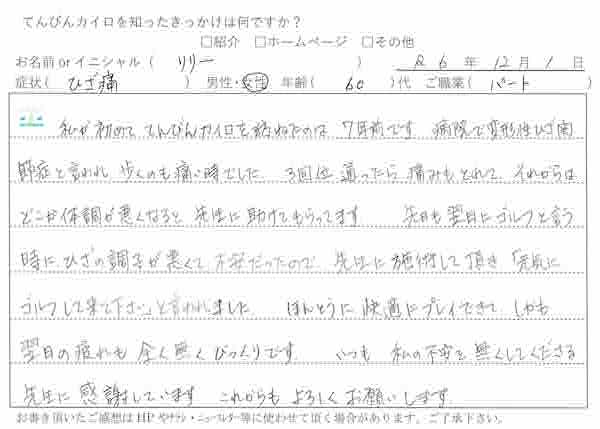 てんびんカイロを知ったきっかけは何ですか？
□紹介 □ホームページ □その他
お名前 or イニシャル（ リリー ） R6年 12月 1日
症状（ ひざ痛 ） 男性・女性 年齢（ 60 ）代 ご職業（ パート ）
私が初めて てんびんカイロを訪ねたのは 7年前です 病院で変形性ひざ関
節症と言われ 歩くのも痛い時でした 3回位 通ったら 痛みもとれて それからは
どこか体調が悪くなると 先生に助けてもらってます 先日も翌日にゴルフと言う
時に ひざの調子が悪くて 不安だったので 先生に施術して頂き 「元気に
ゴルフして来て下さい」と言われました ほんとうに快適にプレイできて しかも
翌日の疲れも全く無く びっくりです いつも 私の不安を無くしてくださる
先生に 感謝しています これからも よろしくお願いします
お書き頂いたご感想はHPやチラシ・ニュースレター等に使わせて頂く場合があります。ご了承下さい。